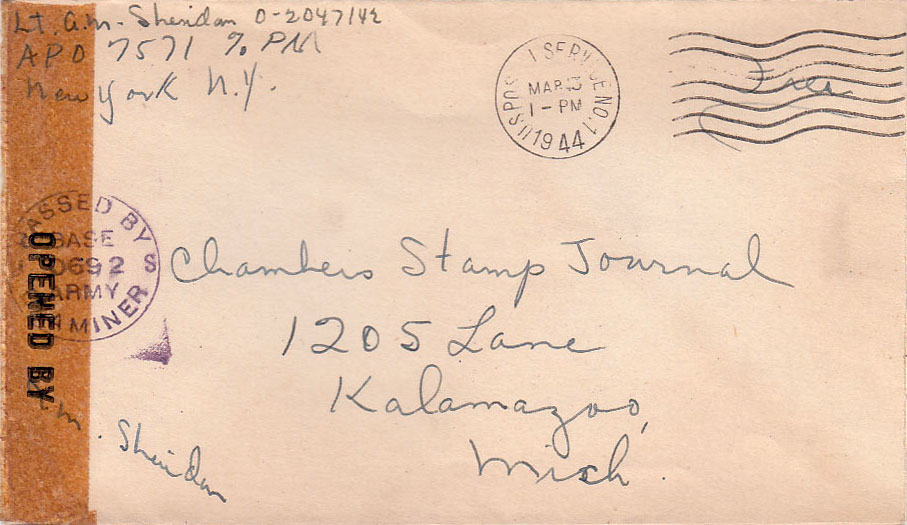 Lt. A.M. Sheridan O-2047142
APO 7571 % PM
New York N.Y.
U.S. POS L SERVICE NO. 1
MAR 13
1 - PM
1944
Free
PASSED BY
BASE
0692
ARMY
MINER S
OPENED BY
Chambers Stamp Journal
1205 Lane
Kalamazoo,
Mich.
Sheridan